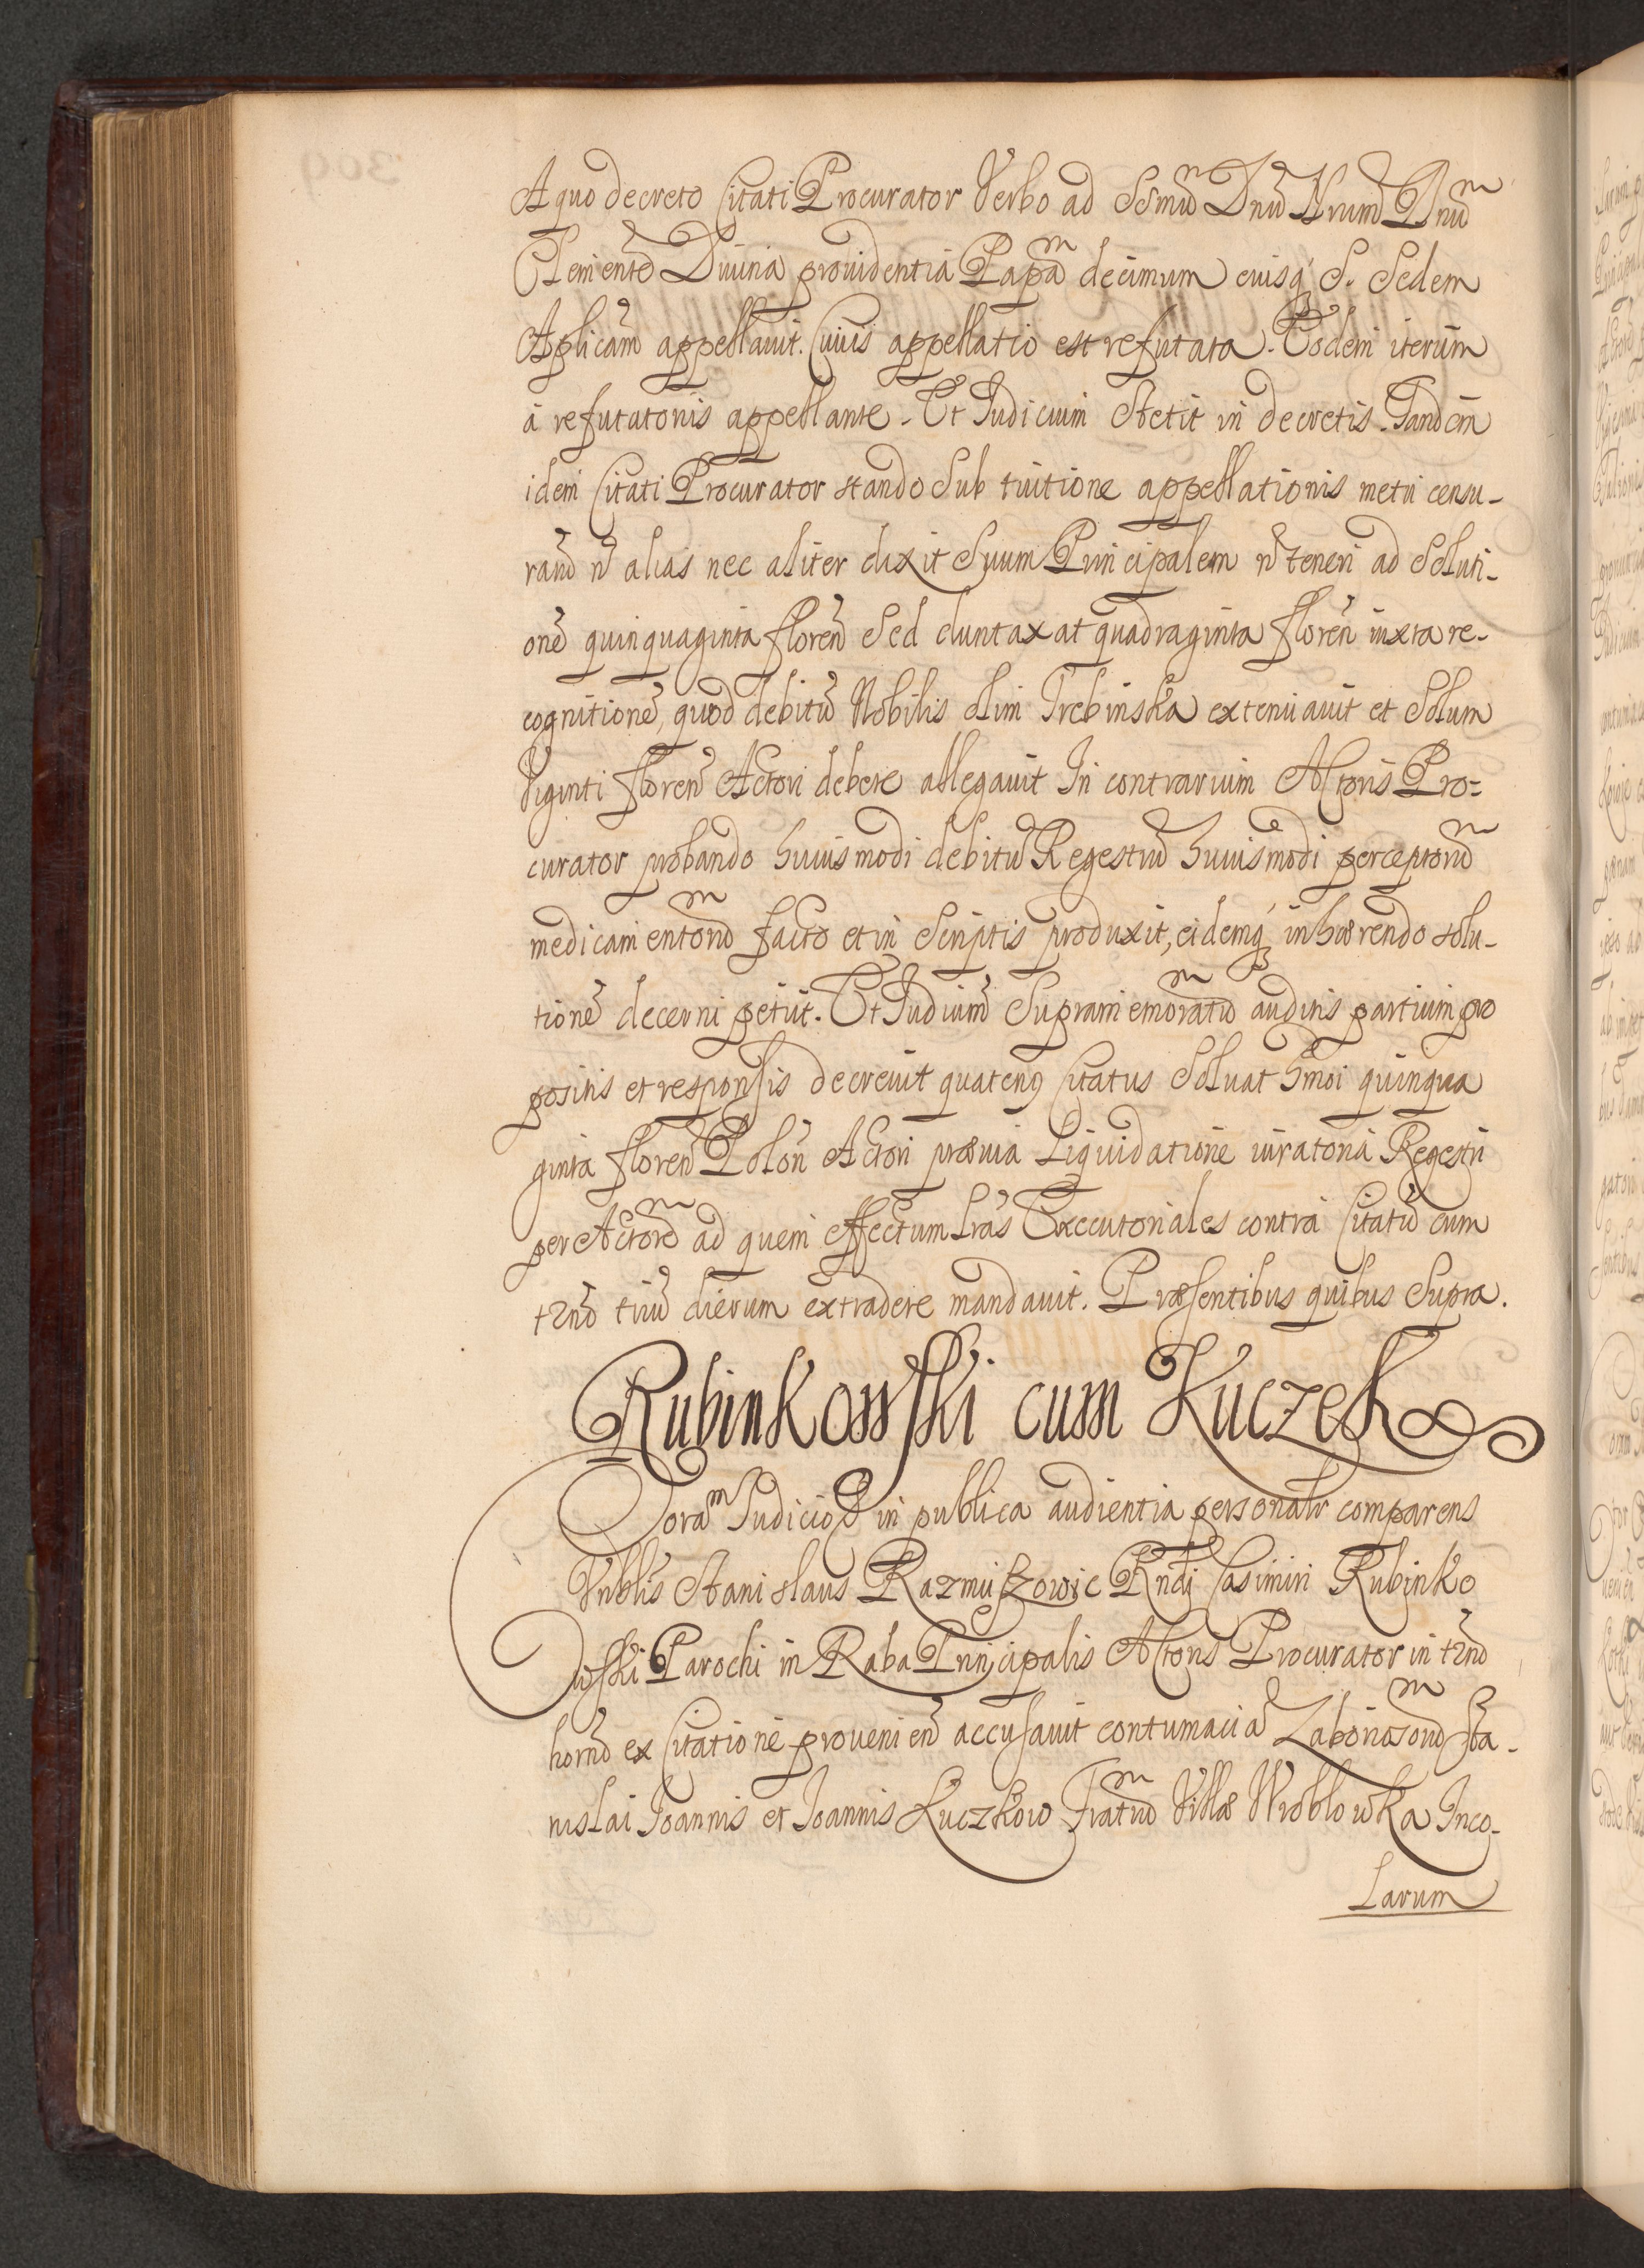 A quo decreto Citati Procurator Verbo ad SSmū Dnū Nrum Dnū
Clementē Diuina prouidentia Papā decimum eiusq; S. Sedem
Aplicam̄ appellauit. Cuius appellatio est refutata. Eodem iterum
á refutatonis appellante. Et Judicium stetit in decretis. Tandem
idem Citati Procurator stando Sub tuitione appellationis metu censu-
rarū n̄ alias nec aliter dixit Suum Principalem n̄ teneri ad Soluti-
onē quinquaginta florēn Sed duntaxat quadraginta florēn iuxta re-
cognitionē, quod debitū Nobilis olim Trebinska extenuauit et Solum
Viginti florēn Actori debere allegauit In contrarium Actoris Pro-
curator probando huiusmodi debitū Regestrū huiusmodi perceptorū
medicamentorū facto et in Scriptis produxit, eidemq; inhærendo solu-
tionē decerni petiit. Et Judiciū Supramemoratū auditis partium pro
positis et responsis decreuit quatenus Citatus Soluat hmōi quinqua
ginta florēn Polōn Actori præuia Liquidatione iuratoria Regestri
per Actorē ad quem effectum Lrās Executoriales contra Citatū cum
tr̄no triū dierum extradere mandauit. Præsentibus quibus Supra.
Rubinkowski cum Kuczek
Coram Judicio in publica audientia personalr̄ comparens
Vnblīs Stanislaus Razmuszowic Rn̄di Casimiri Rubinko
wski Parochi in Raba Principalis Actoris Procurator in tr̄no
horno ex Citatione prouenieñ accusauit contumaciā Laboriosorū Sta-
nislai Joannis et Joannis Kuczkow Fratrū Villæ Wroblowka Inco-
larum